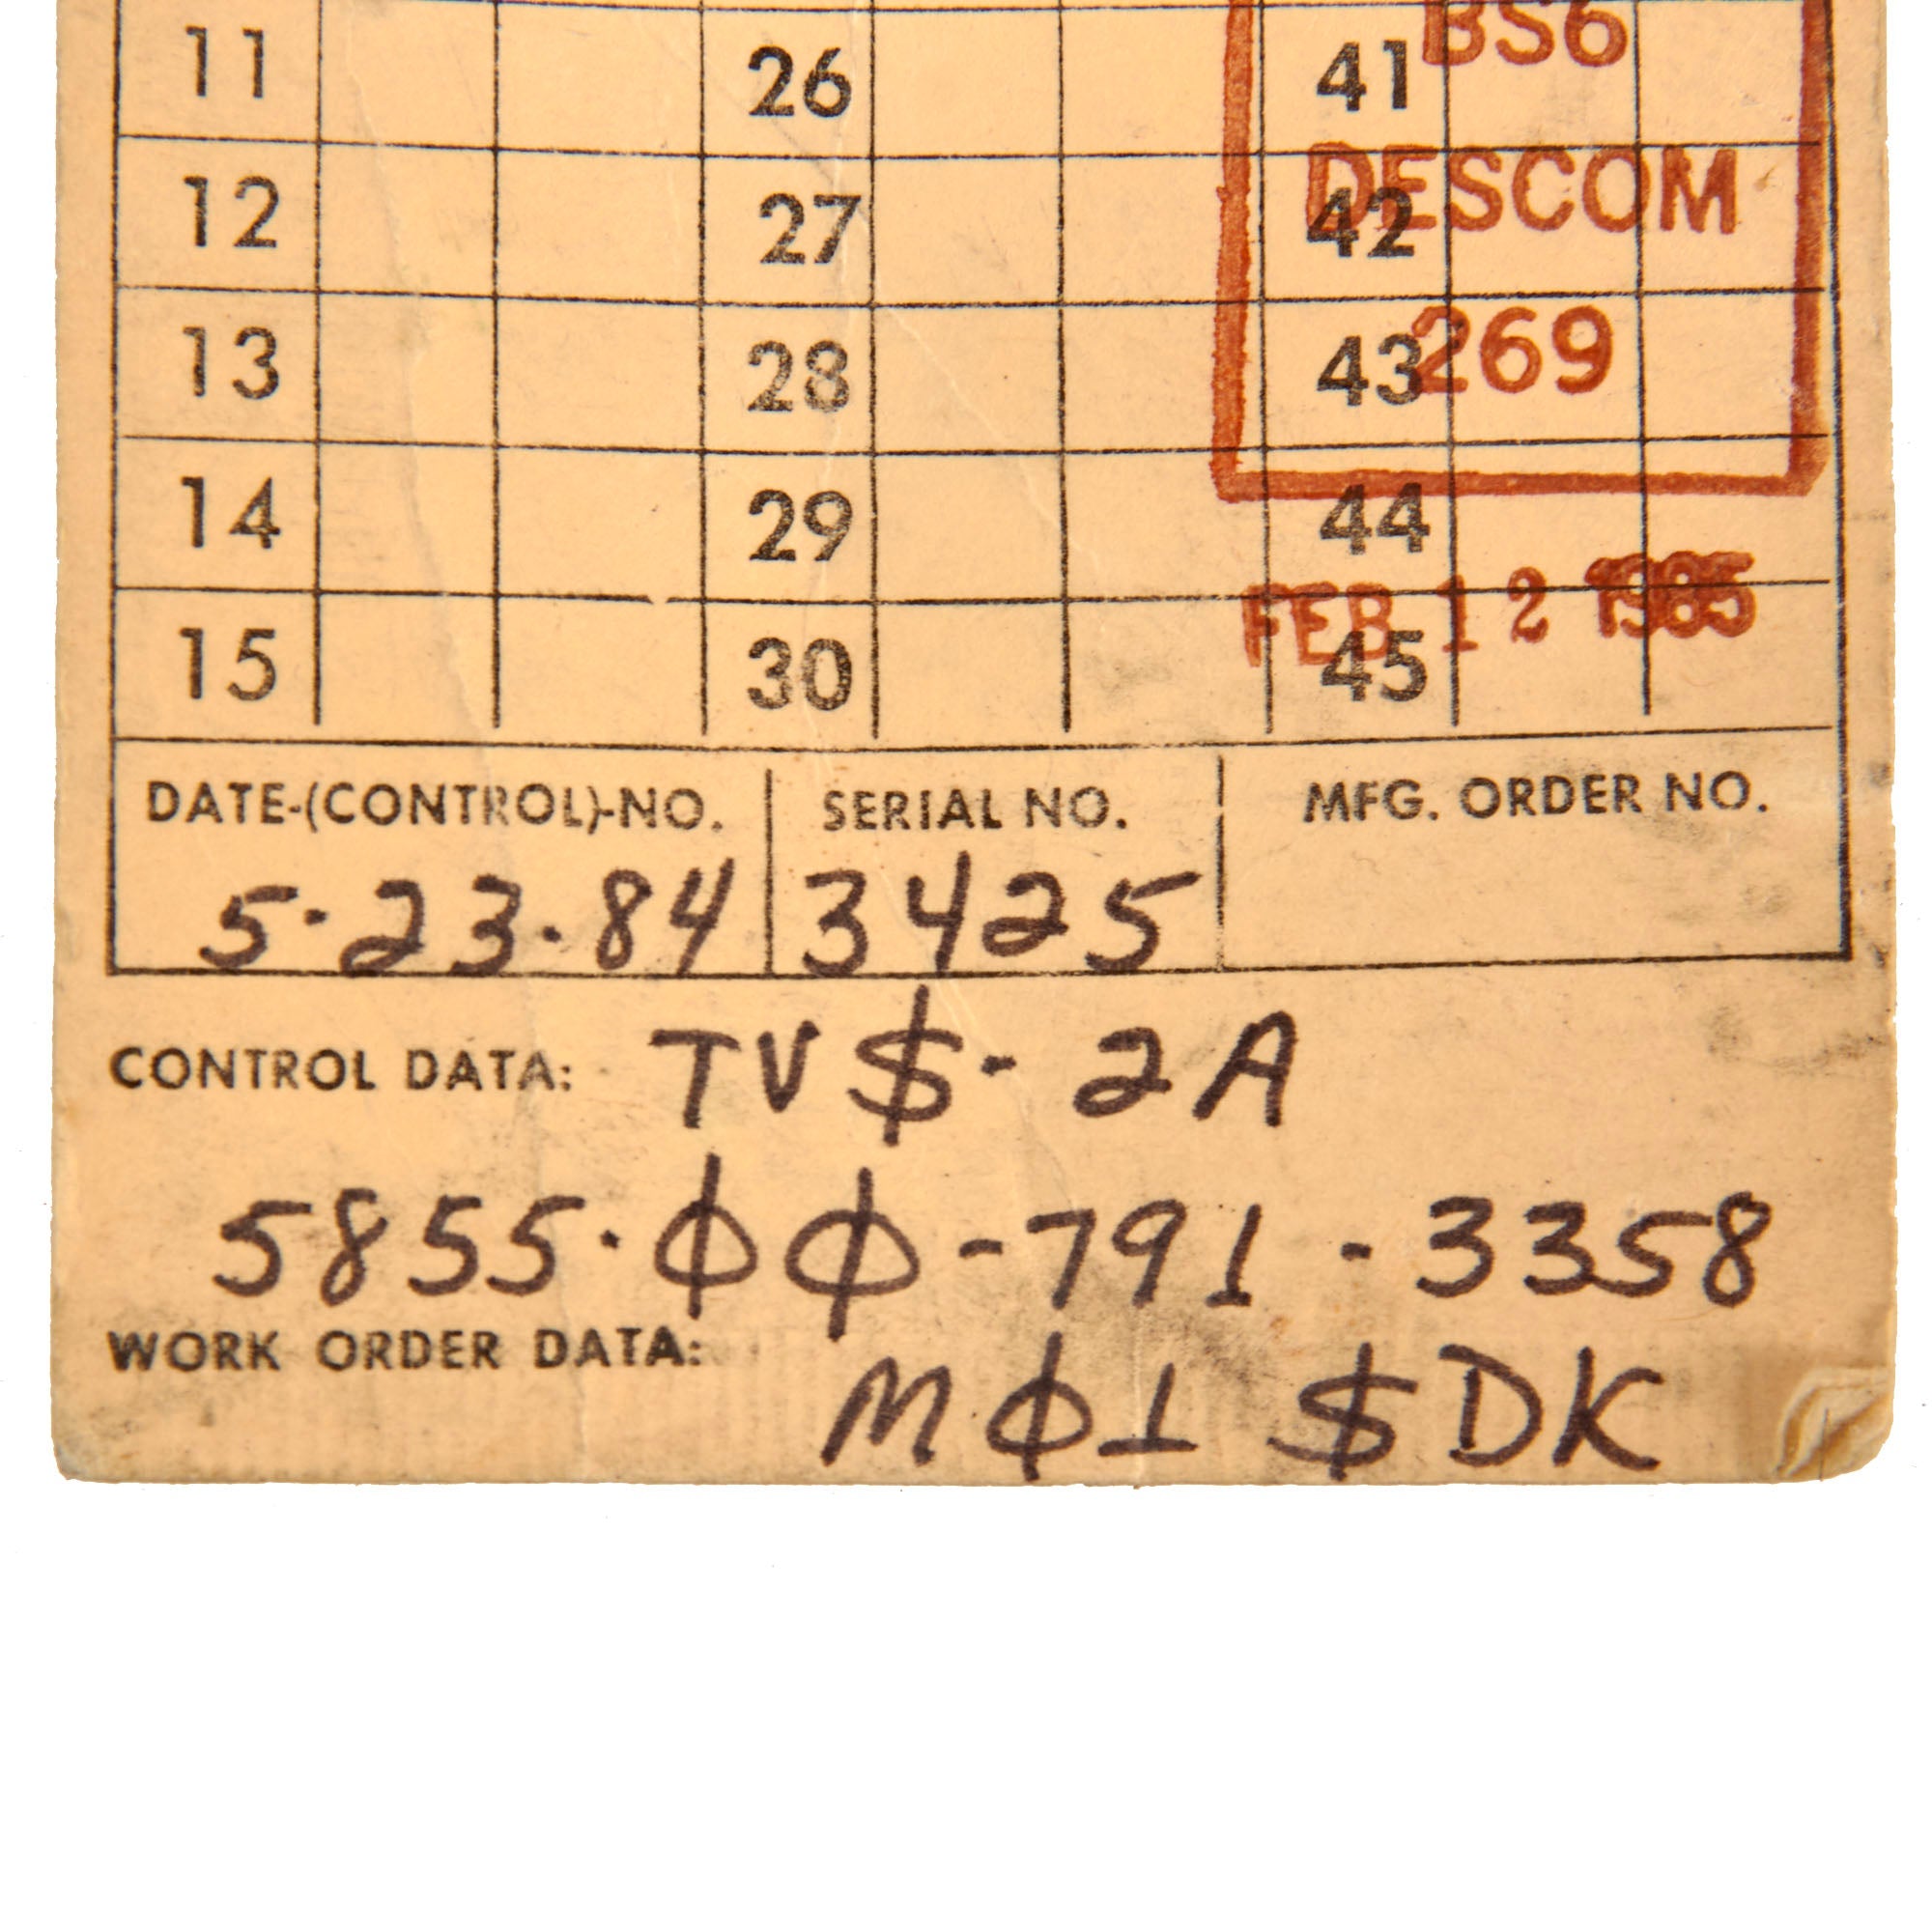 11 26 41 BS6
12 27 42 DESCOM
13 28 43 269
14 29 44
15 30 45 FEB 12 1985
DATE-(CONTROL)-NO. SERIAL NO. MFG. ORDER NO.
5·23·84 3425
CONTROL DATA: TV$- 2A
5855·ØØ-791-3358
WORK ORDER DATA: MØ1 $DK